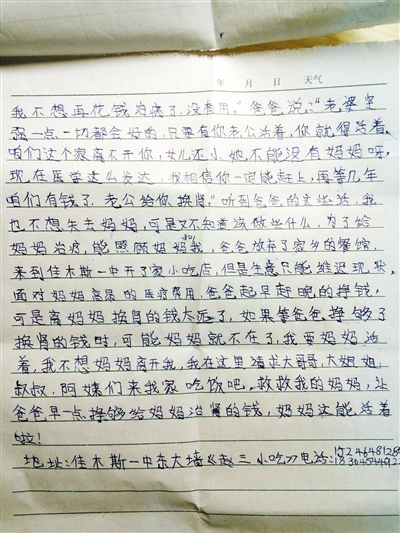 年 月 日 天气
我不想再花钱治病了,没有用。"爸爸说:"老婆坚
强一点一切都会好的,只要有你老公活着,你就得活着。
咱们这个家离不开你,女儿还小她不能没有妈妈呀,
现在医学这么发达,我相信你一定能赶上,再等几年
咱们有钱了,老公给你换肾。"听到爸爸的这些话,我
也不想失去妈妈,可是又不知道该做些什么,为了给
妈妈治病,能照顾妈妈和我,爸爸放弃了家乡的餐馆,
来到佳木斯一中开了家小吃店,但是生意只能维迟现状。
面对妈妈高昂的医疗费用,爸爸起早赶晚的挣钱,
可是离妈妈换肾的钱太远了,如果等爸爸挣够了
换肾的钱时,可能妈妈就不在了,我要妈妈活
着,我不想妈妈离开我,我在这里请求大哥哥,大姐姐,
叔叔,阿姨们来我家吃饭吧。救救我的妈妈,让
爸爸早一点挣够给妈妈治肾的钱,妈妈这能活着
啦!
地址:佳木斯一中东大墙《赵三小吃》电话: